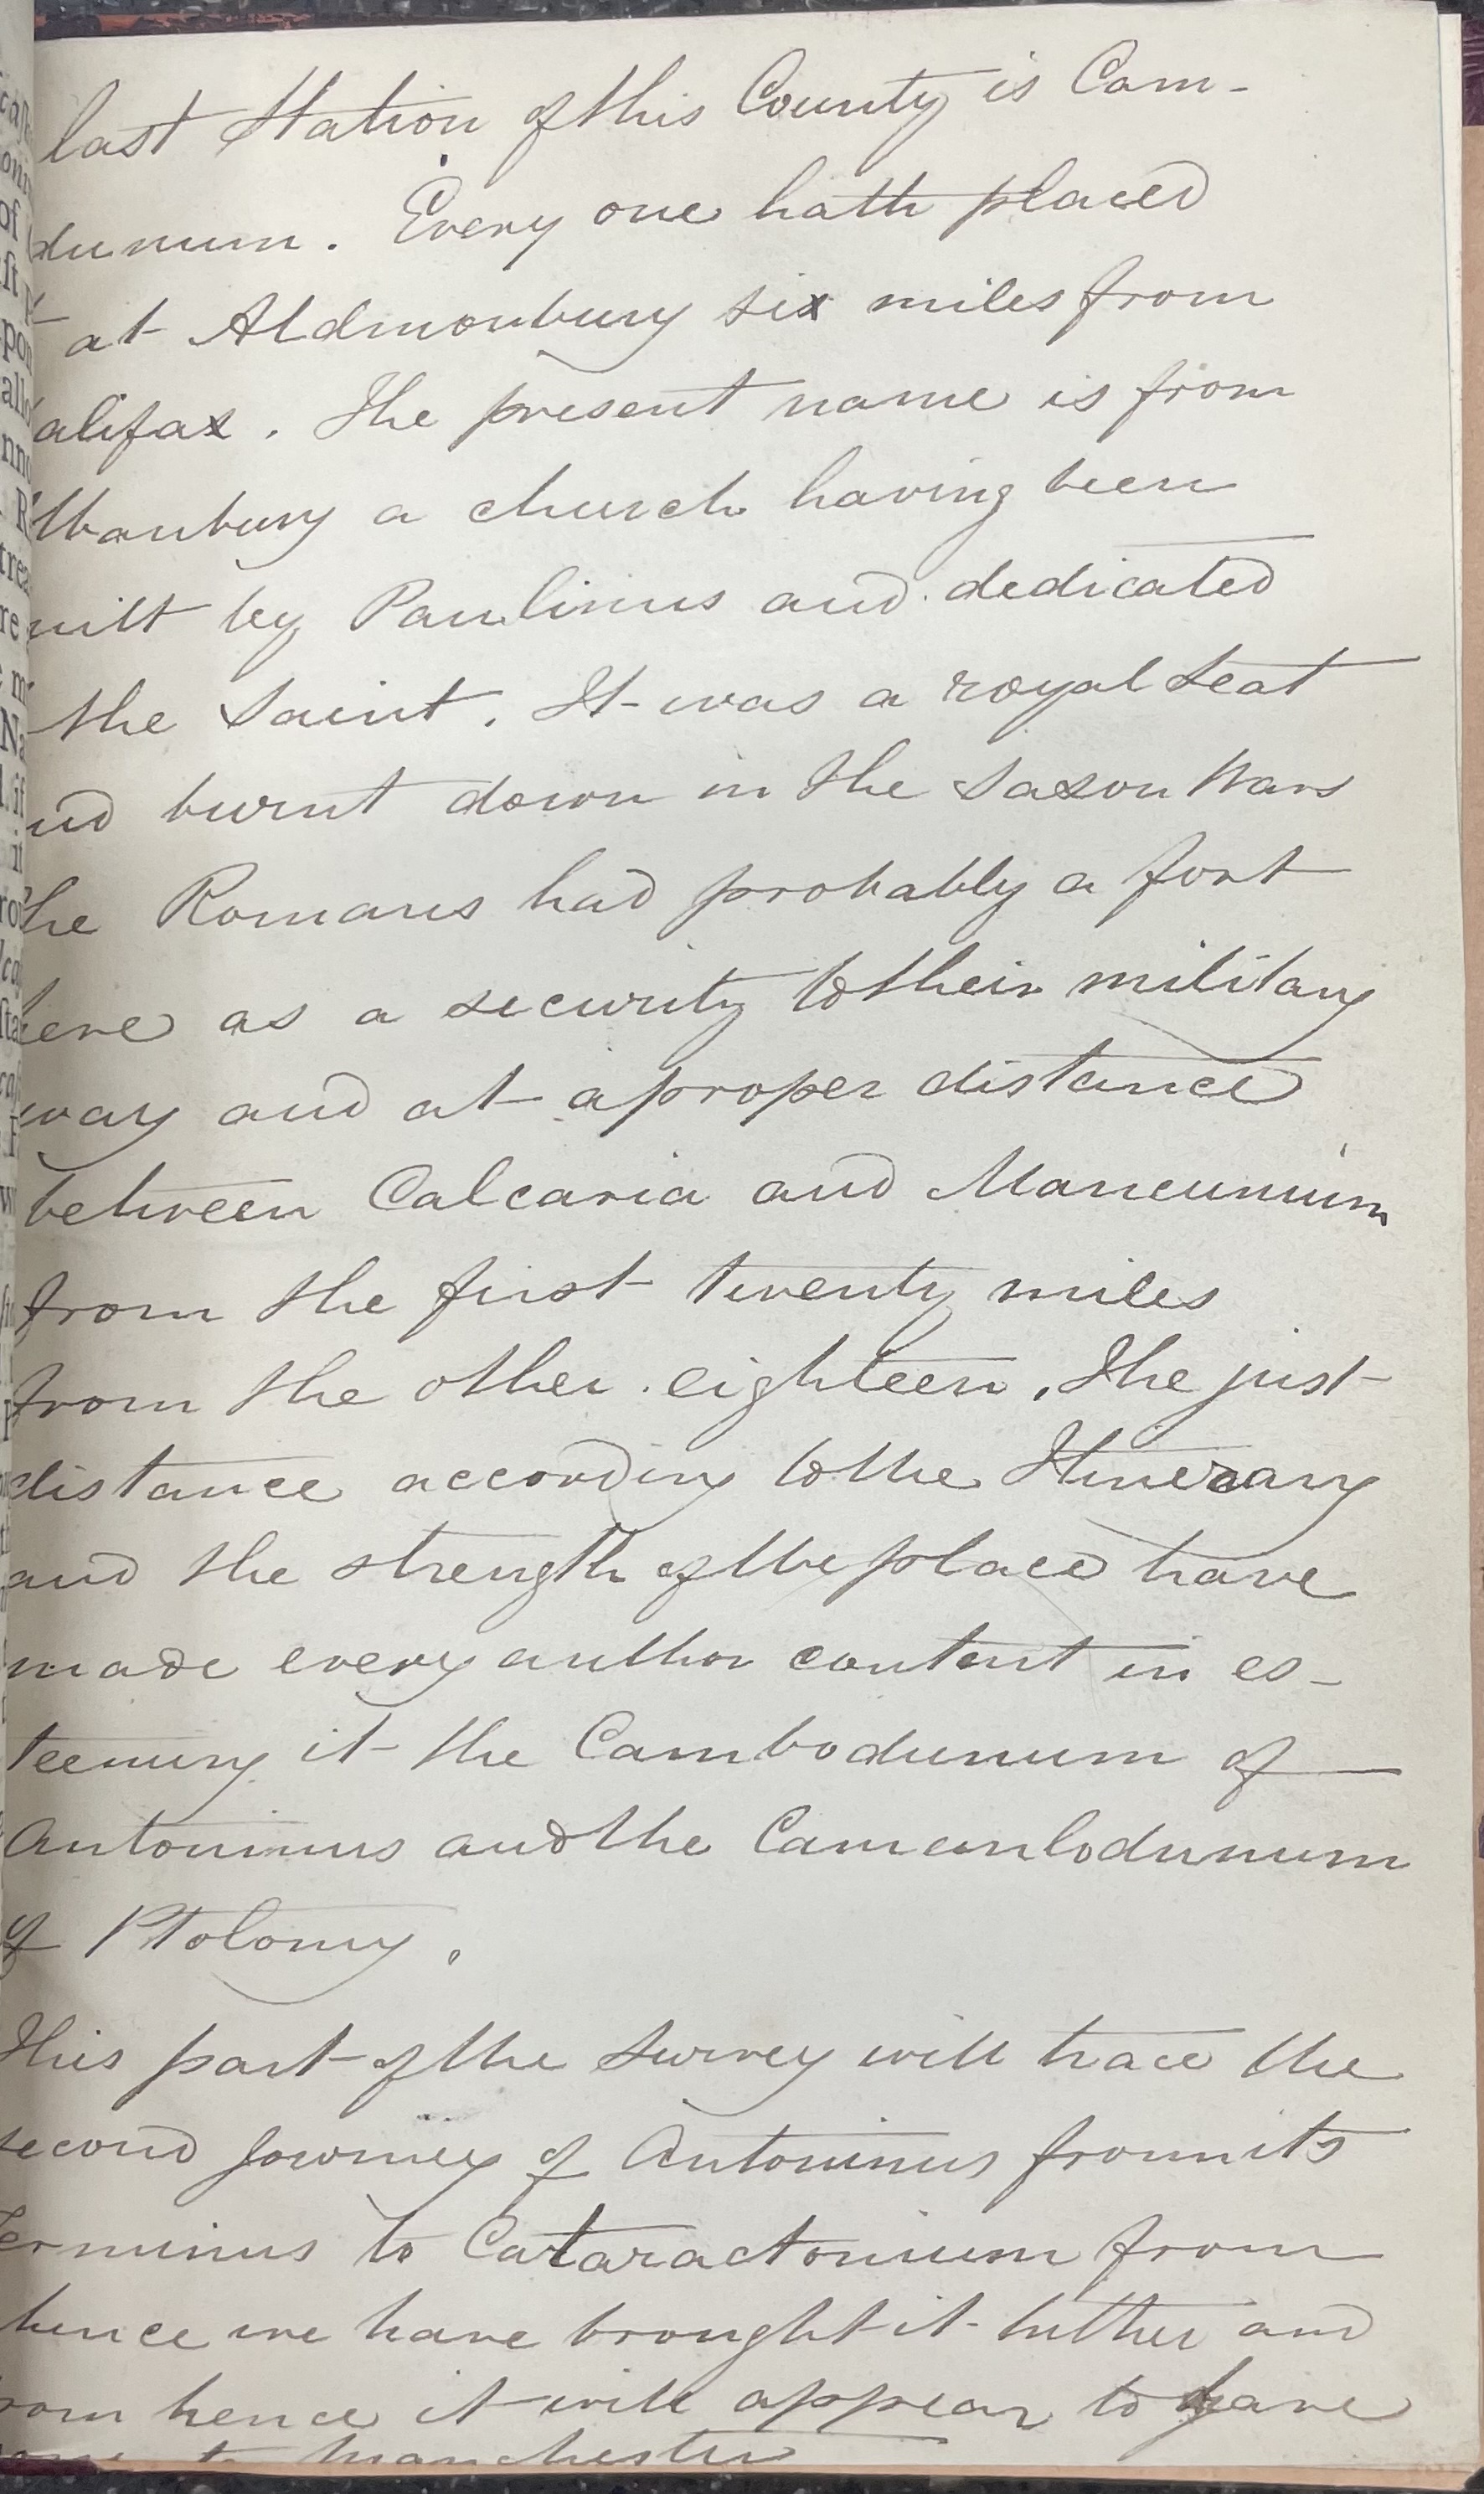 last Station of this County is Cam-
dunum. Every one hath placed
at Aldmonbury six miles from
alifax. The present name is from
lbanbury a church having been
uilt by Paulinus and dedicated
the Saint. It was a royal seat
nd burnt down in the Saxon Wars
he Romans had probably a fort
here as a security to their military
way and at a proper distance
between Calcaria and Mancunium
from the first twenty miles
from the other eighteen. The just
distance according to the Itinerary
and the strength of the place have
made every author content in es-
teeming it the Cambodunum of
Antoninus and the Camunlodunum
of Ptolomy.
This part of the Survey will trace the
second Journey of Antoninus from its
Terminus to Cataractonium from
hence we have brought it hither and
rom hence it will appear to have
to Manchester